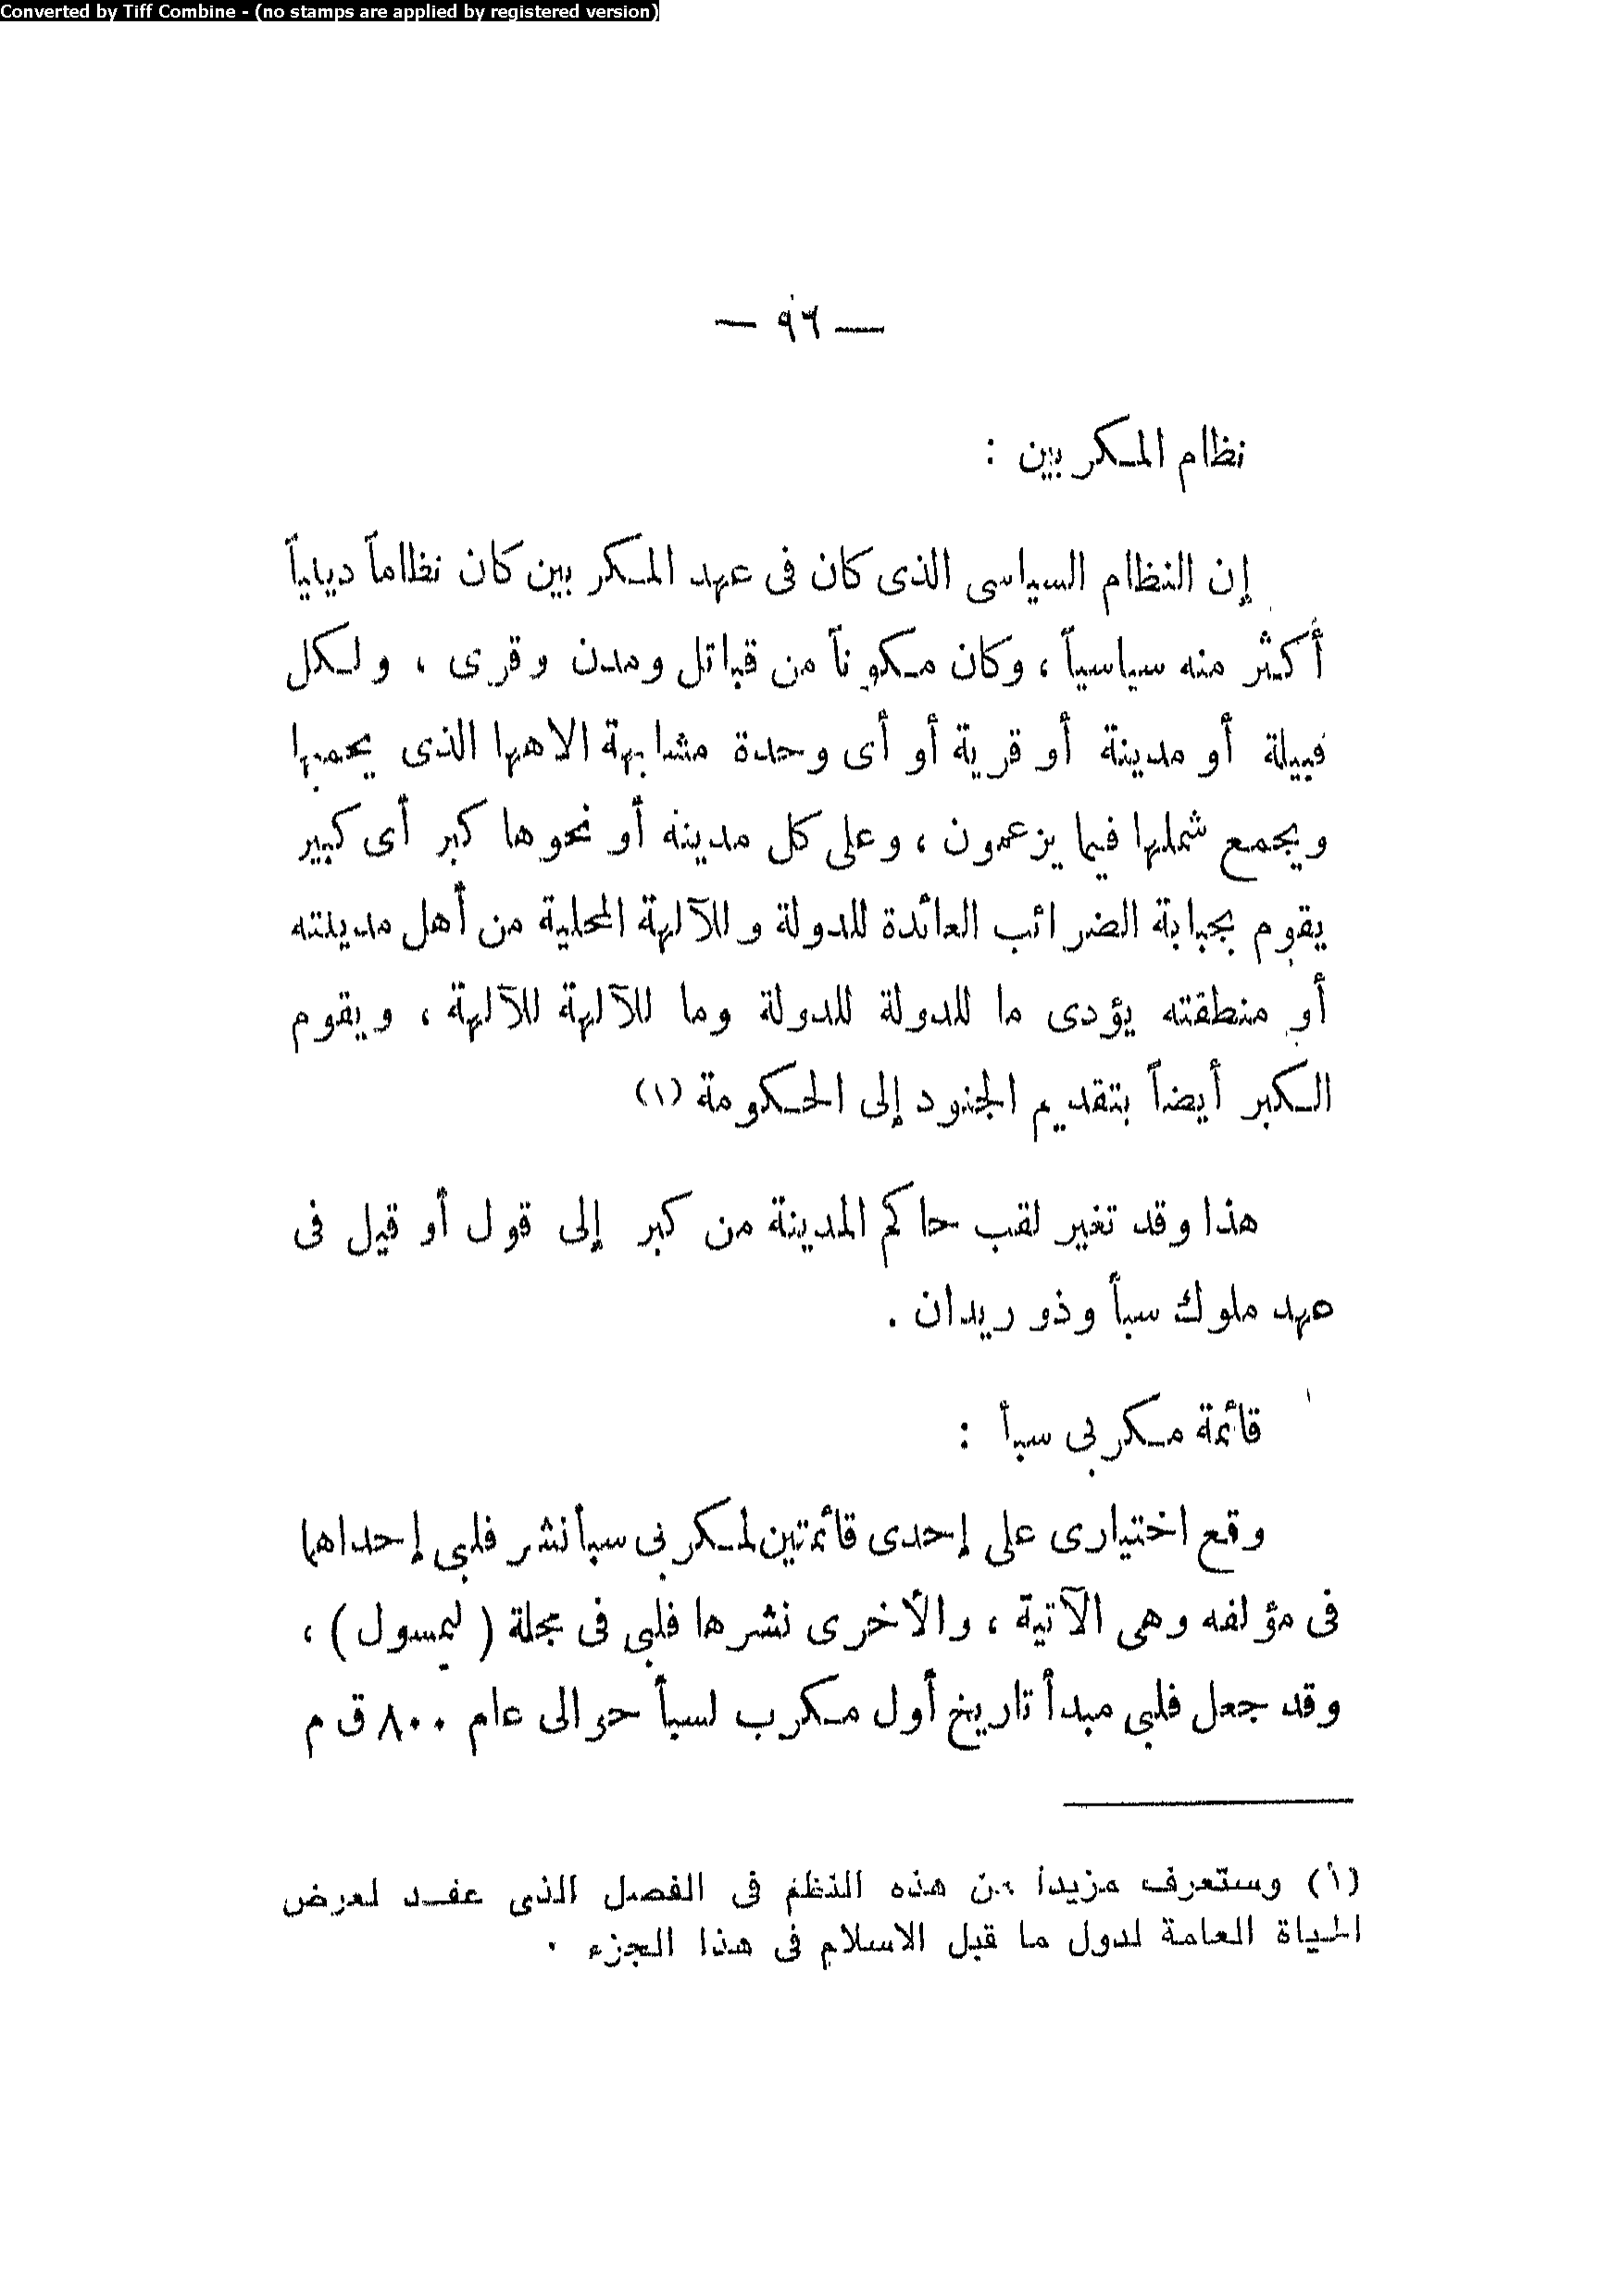 Converted by Tiff Combine - (no stamps are applied by registered version)
— ٩٦ —
نظام المكربين :
إن النظام السياسى الذى كان فى عهد المكربين كان نظاماً دينياً
أكثر منه سياسياً ، وكان مكوناً من قبائل ومدن وقرى ، ولكل
قبيلة أو مدينة أو قرية أو أى وحدة مشابهة الاهها الذى يحميها
ويجمع شملها فيما يزعمون ، وعلى كل مدينة أو نحوها كبر أى كبير
يقوم بجباية الضرائب العائدة للدولة وللآلهة المحلية من أهل مدينته
أو منطقته يؤدى ما للدولة للدولة وما للآلهة للآلهة ، ويقوم
الكبر أيضاً بتقديم الجنود إلى الحكومة (١)
هذا وقد تغير لقب حاكم المدينة من كبر إلى قول أو قيل فى
عهد ملوك سبأ وذو ريدان .
قائمة مكربى سبأ :
وقع اختيارى على إحدى قائمتين لمكربى سبأ نشر فلبى إحداهما
فى مؤلفه وهى الآتية ، والأخرى نشرها فلبى فى مجلة ( ليمسول ) ،
وقد جعل فلبى مبدأ تاريخ أول مكرب لسبأ حوالى عام ٨٠٠ ق م
(١) وستعرف مزيدا من هذه النظم فى الفصل الذى عقد لعرض
الحياة العامة لدول ما قبل الاسلام فى هذا الجزء .